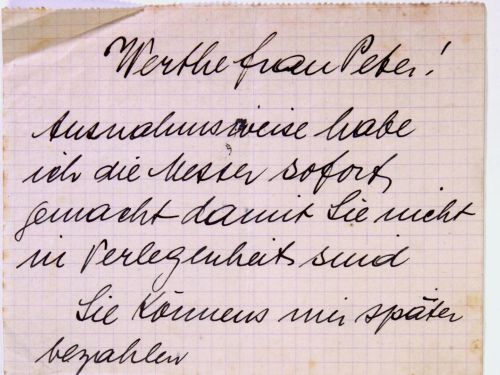 Werthe Frau Peter!
Ausnahmsweise habe
ich die Messer sofort
gemacht damit Sie nicht
in Verlegenheit sind
Sie könnens mir später
bezahlen